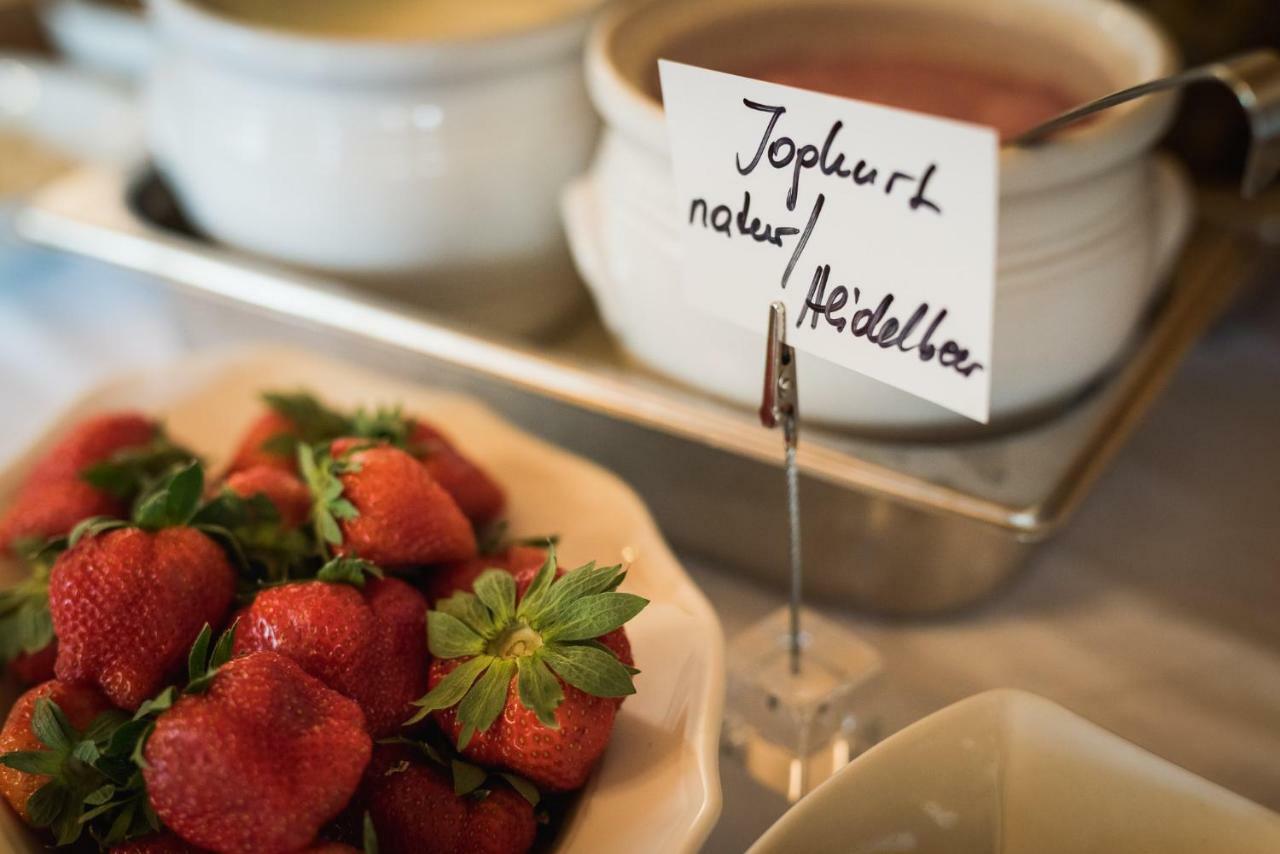 Joghurt
natur/
Heidelbeer